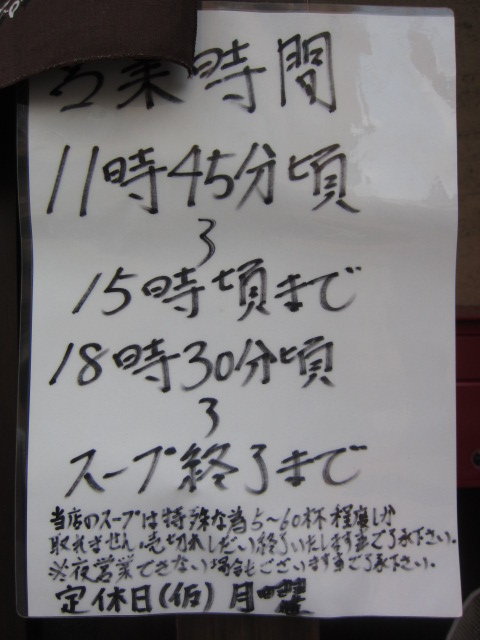 営業時間
11時45分頃
〜
15時頃まで
18時30分頃
〜
スープ終了まで
当店のスープは特殊な為5〜60杯程度しか
取れません、売切れしだい終了いたします事ご了承下さい。
※夜営業できない場合もございます事ご了承下さい。
定休日(仮)月